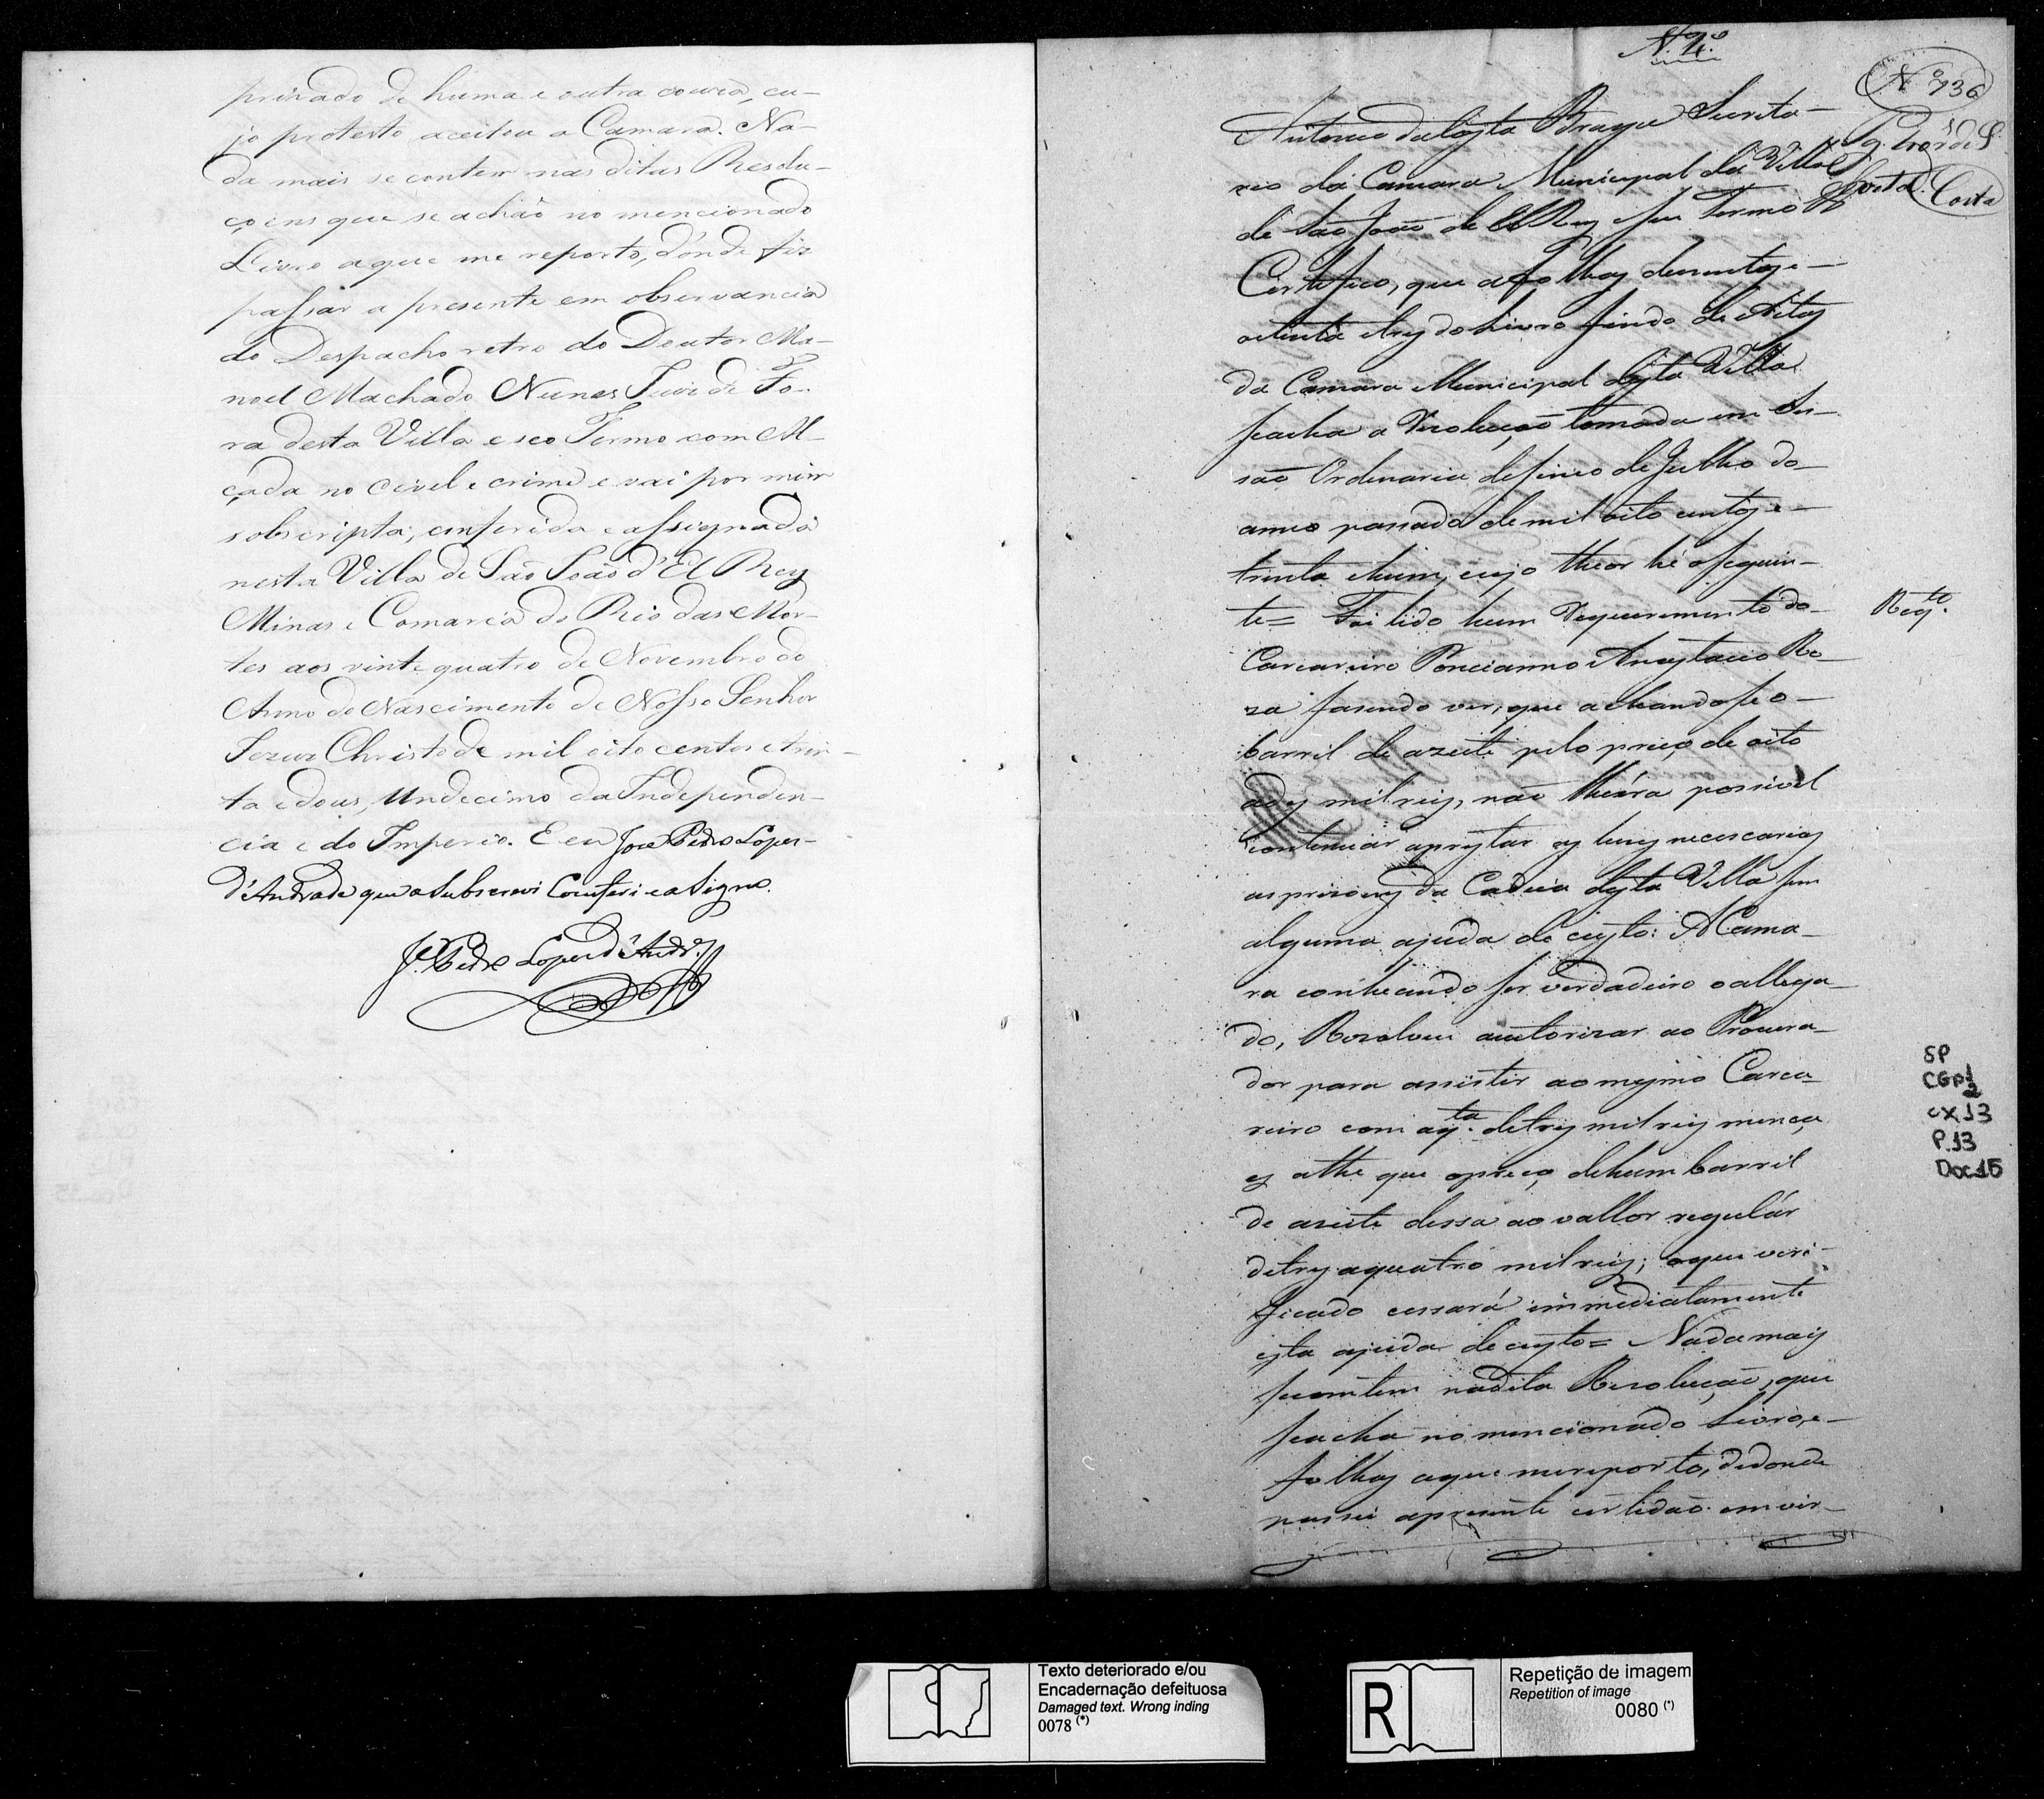 privado de huma e outra couza, cu-
jo protesto aceitou a Camara. Na-
da mais se contem nas ditas Resolu-
çoens que se achão no mencionado
Livro a que me reporto, d'onde fiz
passar a presente em observancia
do Despacho retro do Doutor Ma-
noel Machado Nunes Juiz de Fo-
ra desta Villa e seo Termo com Al-
çada no civel e crime e vai por mim
sobscripta, conferida e assignada
nesta Villa de São João d'El Rey
Minas e Comarca do Rio das Mor-
tes aos vinte quatro de Novembro do
Anno do Nascimento de Nosso Senhor
Jezus Christo de mil oito centos e trin-
ta e dous, Undecimo da Independen-
cia e do Imperio. E eu Joze Pedro Lopes
d'Andrade que a Subscrevi Conferi e aSigno.
Je. Pedro Lopes d'Andr.e
N.
No 736
Pg.
Costa
Antonio da Costa Braga Secreta-
rio da Camara Municipal da Villa
de São João de ElRey e seu Termo
Certifico, que afolhas duzentas e
oitenta e tres do Livro findo de Actas
da Camara Municipal desta Villa
seacha a Rezolução tomada em Ses-
são Ordinaria de sinco de Julho do
anno passado de mil oito centos e
trinta e hum, cujo theor hé oseguin-
te = Foi lido hum Requerimento do
Reqto.
Carcareiro Poncianno Anastacio Ro-
za fasendo ver, que achandose o
barril de azeite pelo preço de oito
a des mil reis, não lhe éra possivel
continuar aprestar as luzes necescarias
as prizoens da Cadeia desta Villa sem
alguma ajuda de custo: A Cama-
ra conhecendo ser verdadeiro o allega-
do, Rezolveu authorizar ao Procura-
dor para assistir ao mesmo Carca-
reiro com aqta. de tres mil reis mença
es athe que opreço dehum barril
de azeite dessa ao vallor regulár
detres aquatro mil reis; oque veri-
ficado cessará immediatamente
esta ajuda decusto = Nada mais
secontem nadita Rezolução, que
seacha no mencionado Livro, e
folhas aque mereporto, dedonde
passei apresente certidão em vir-
SP
CGP1
2
CX.13
P.13
Doc.15
Texto deteriorado e/ou
Encadernação defeituosa
Damaged text. Wrong inding
0078 (*)
R
Repetição de imagem
Repetition of image
0080 (*)